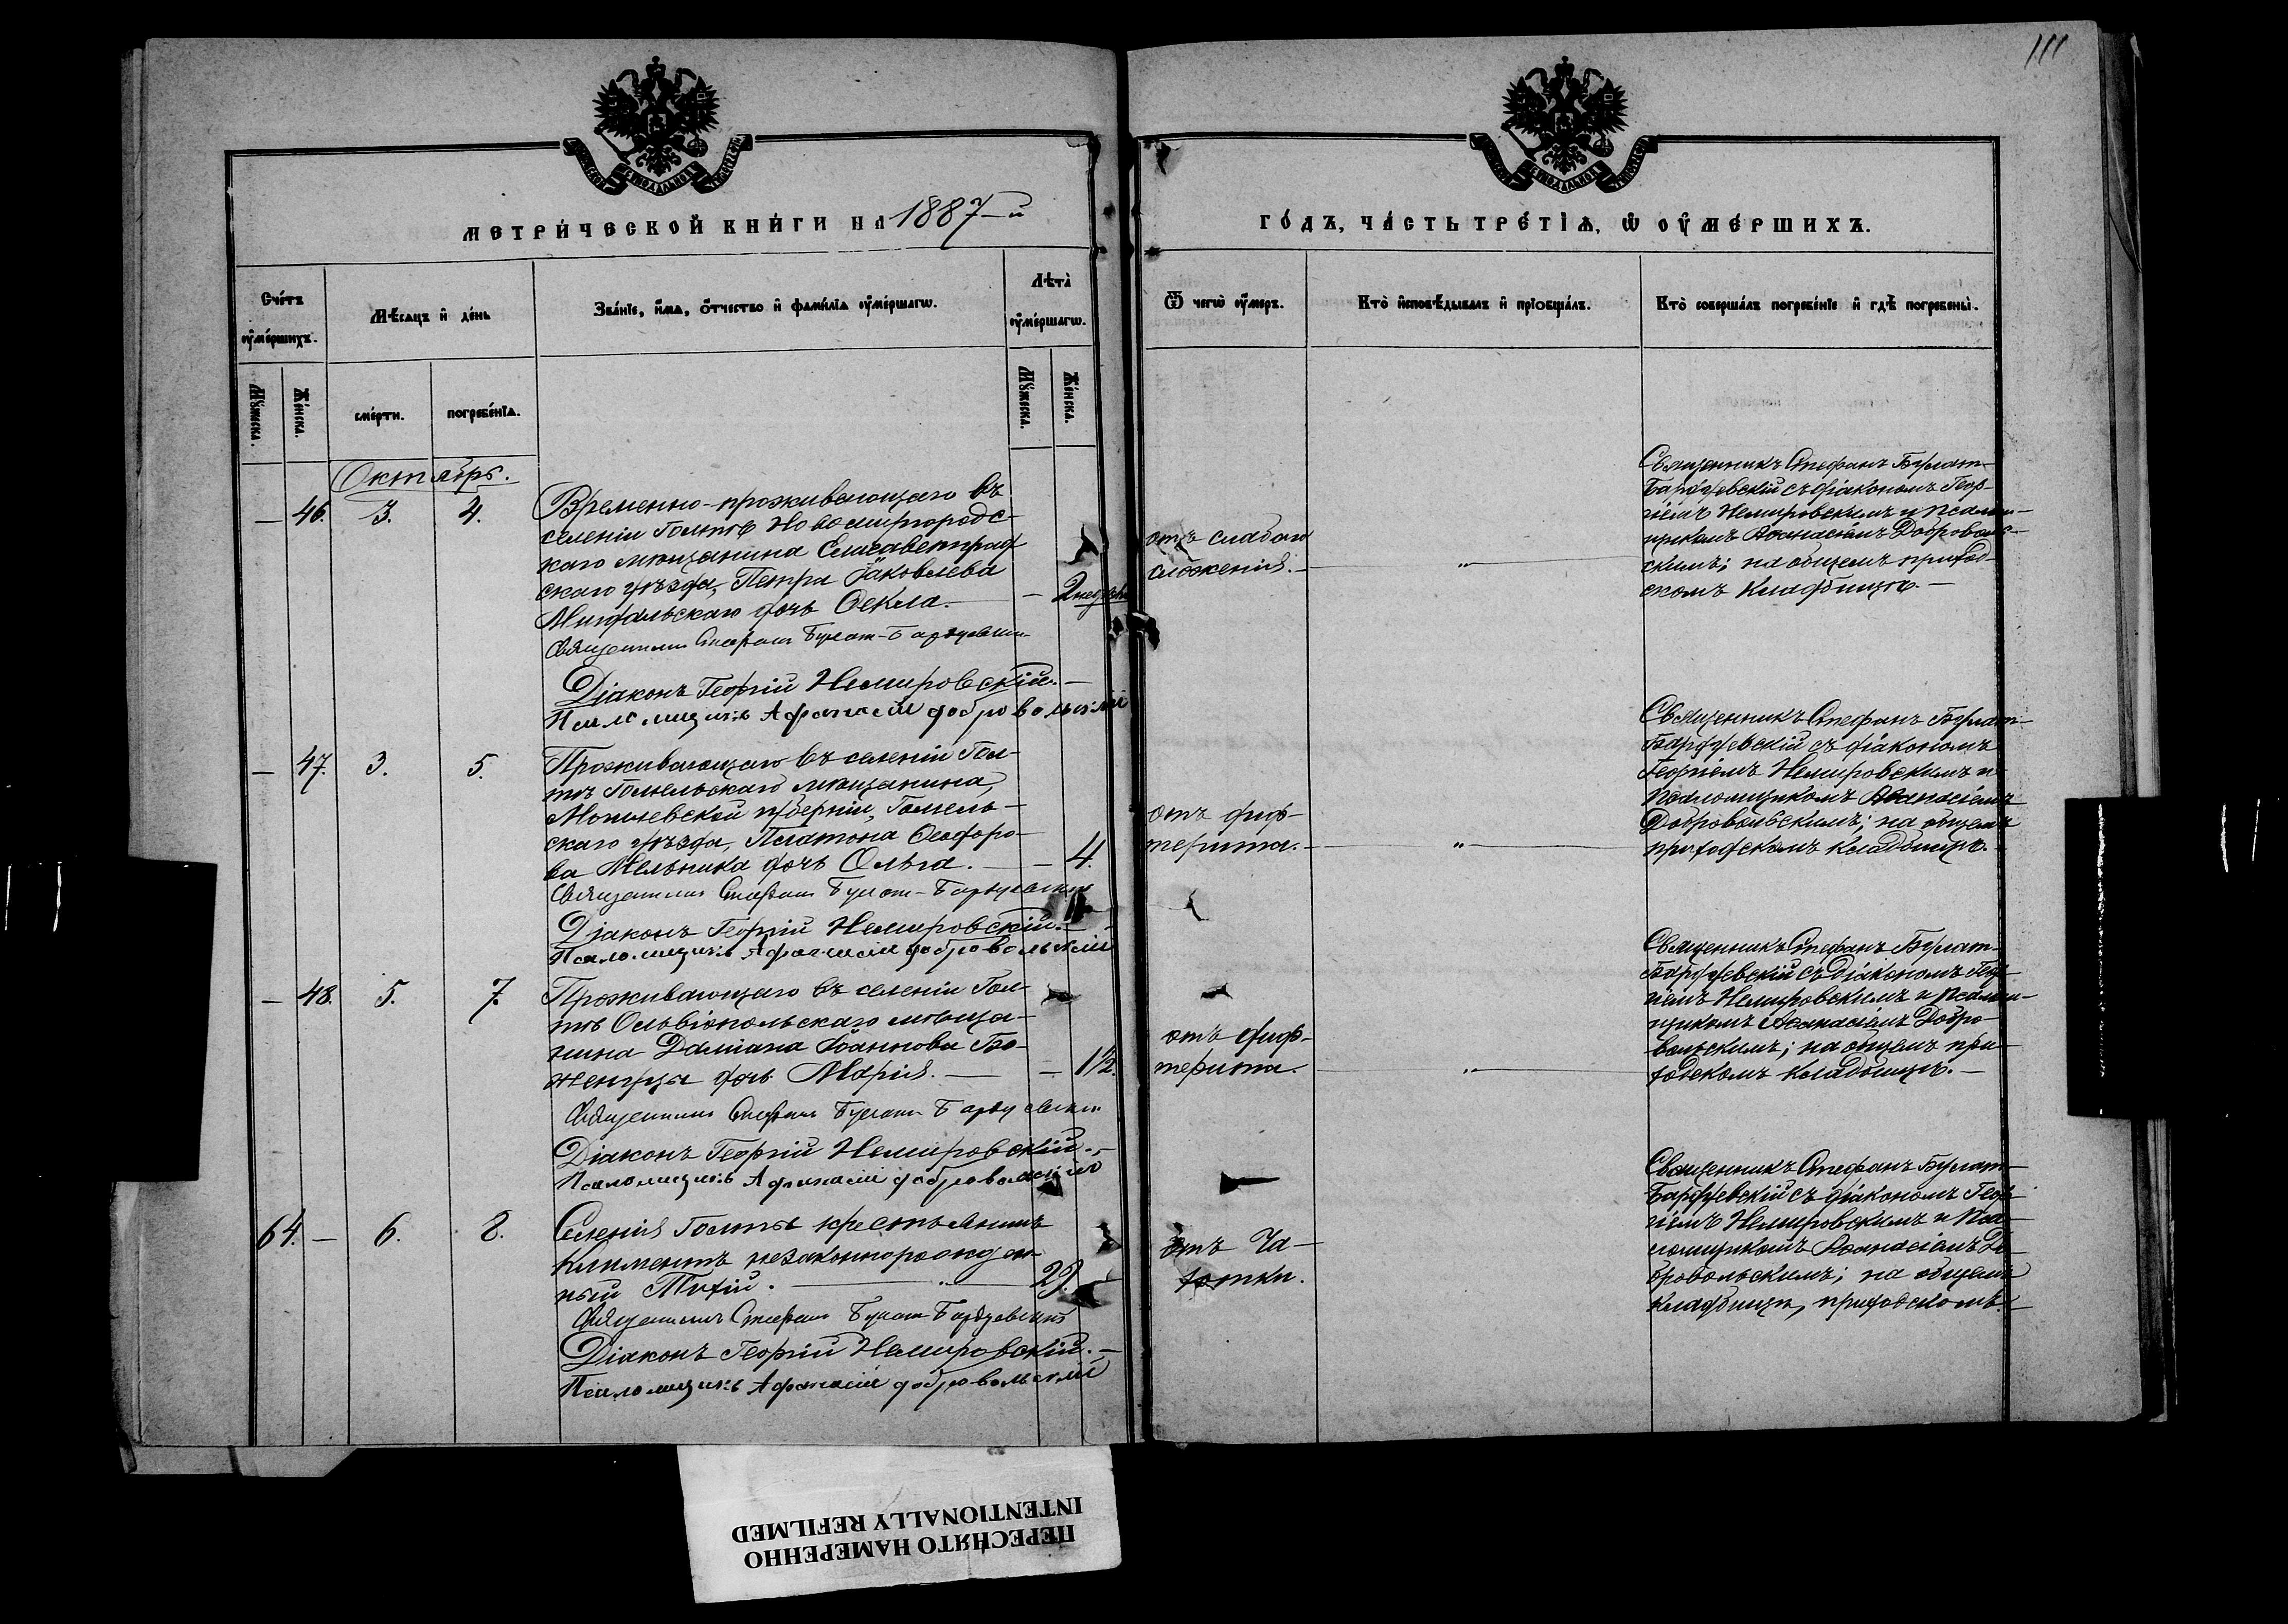 111
МЕТРИ́ЧЕСКОЙ КНИ́ГИ НА 1887-й
ГО́ДЪ, ЧА́СТЬ ТРЕ́ТІѦ, Ѡ ОУ҆МЕ́РШИХЪ.
Сче́тъ оу҆ме́ршихъ.
Мѣ́сяцъ и҆ де́нь
Зва́ніе, и҆́мя, ѻ҆́тчество и҆ фами́лія оу҆ме́ршагѡ.
Лѣта̀ оу҆ме́ршагѡ.
Ѿ чегѡ̀ оу҆́меръ.
Кто̀ и҆сповѣ́дывалъ и҆ пріобща́лъ.
Кто̀ соверша́лъ погребе́ніе и҆ гдѣ̀ погребены̀.
Му́жеска.
Же́нска.
сме́рти.
погребе́нія.
Му́жеска.
Же́нска.
Октябрь.
— 46. 3. 4.
Временно-проживающаго въ
селеніи Голтѣ Новомиргородс-
каго мѣщанина Елисаветград
скаго уѣзда, Петра Іаковлева
Мигальскаго дочь Ѳекла. — 2 недѣли
Священникъ Стефанъ Булат-Бардуевскій
Діаконъ Георгій Немировскій. —
Псаломщикъ Афанасій Добровольскій
отъ слабаго
сложенія. — „ —
Священникъ Стефанъ Булат-
Бардуевскій съ діакономъ Геор-
гіемъ Немировскимъ и псалом-
щикомъ Аѳанасіемъ Доброволь-
скимъ; на общемъ приход-
скомъ кладбищѣ. —
— 47. 3. 5.
Проживающаго въ селеніи Гол-
тѣ Гомельскаго мѣщанина,
Могилевской губерніи, Гомель-
скаго уѣзда, Платона Ѳеодоро-
ва Мельника дочь Ольга. — — 4.
Священникъ Стефанъ Булат-Бардуевскій
Діаконъ Георгій Немировскій. —
Псаломщикъ Афанасій Добровольскій
отъ диф-
терита. — „ —
Священникъ Стефанъ Булат-
Бардуевскій съ діакономъ
Георгіемъ Немировскимъ и
псаломщикомъ Аѳанасіемъ
Добровольскимъ; на общемъ
приходскомъ кладбищѣ.
— 48. 5. 7.
Проживающаго въ селеніи Гол-
тѣ Ольвіопольскаго мѣща-
нина Даміана Іоаннова
дочь Марія. — — 1½.
Священникъ Стефанъ Булат-Бардуевскій
Діаконъ Георгій Немировскій. —
Псаломщикъ Афанасій Добровольскій
отъ диф-
терита. — „ —
Священникъ Стефанъ Булат-
Бардуевскій съ діакономъ Геор-
гіемъ Немировскимъ и псалом-
щикомъ Аѳанасіемъ Добро-
вольскимъ; на общемъ при-
ходскомъ кладбищѣ. —
64. — 6. 8.
Селенія Голты крестьянинъ
Климентъ незаконнорожден-
ный — „ — 29.
Священникъ Стефанъ Булат-Бардуевскій
Діаконъ Георгій Немировскій. —
Псаломщикъ Афанасій Добровольскій
отъ Ча-
хотки.
Священникъ Стефанъ Булат-
Бардуевскій съ діакономъ Геор-
гіемъ Немировскимъ и пса-
ломщикомъ Аѳанасіемъ До-
бровольскимъ; на общемъ
кладбищѣ, приходскомъ. —
ПЕРЕСНЯТО НАМЕРЕННО
INTENTIONALLY REFILMED